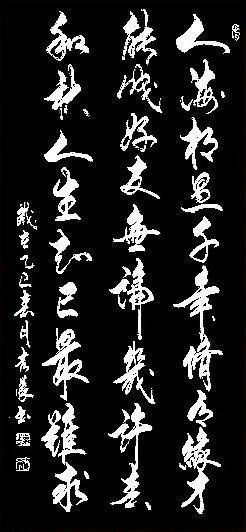 人海相遇千年修有緣才
能成好友無論幾許春
和秋人生知己最難求
歲在乙巳春月書